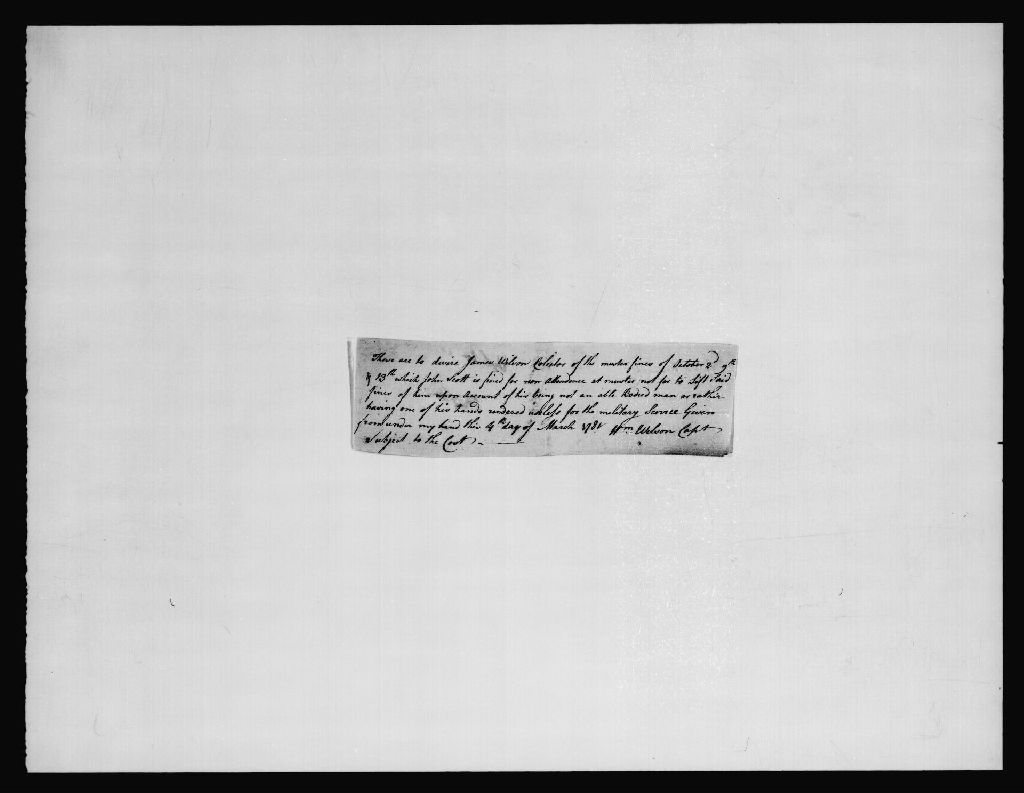 These are to desire James Wilson Colector of the muster fines of October 2d 9th
& 13th which John Scott is fined for non attendence at muster not for to Lift Said
fines of him upon Account of his being not an able Bodied man or rather
having one of his hands rendered useless for the military Service Given
from under my hand this 4th day of March 1781 Wm Wilson Capt
Subject to the Cost